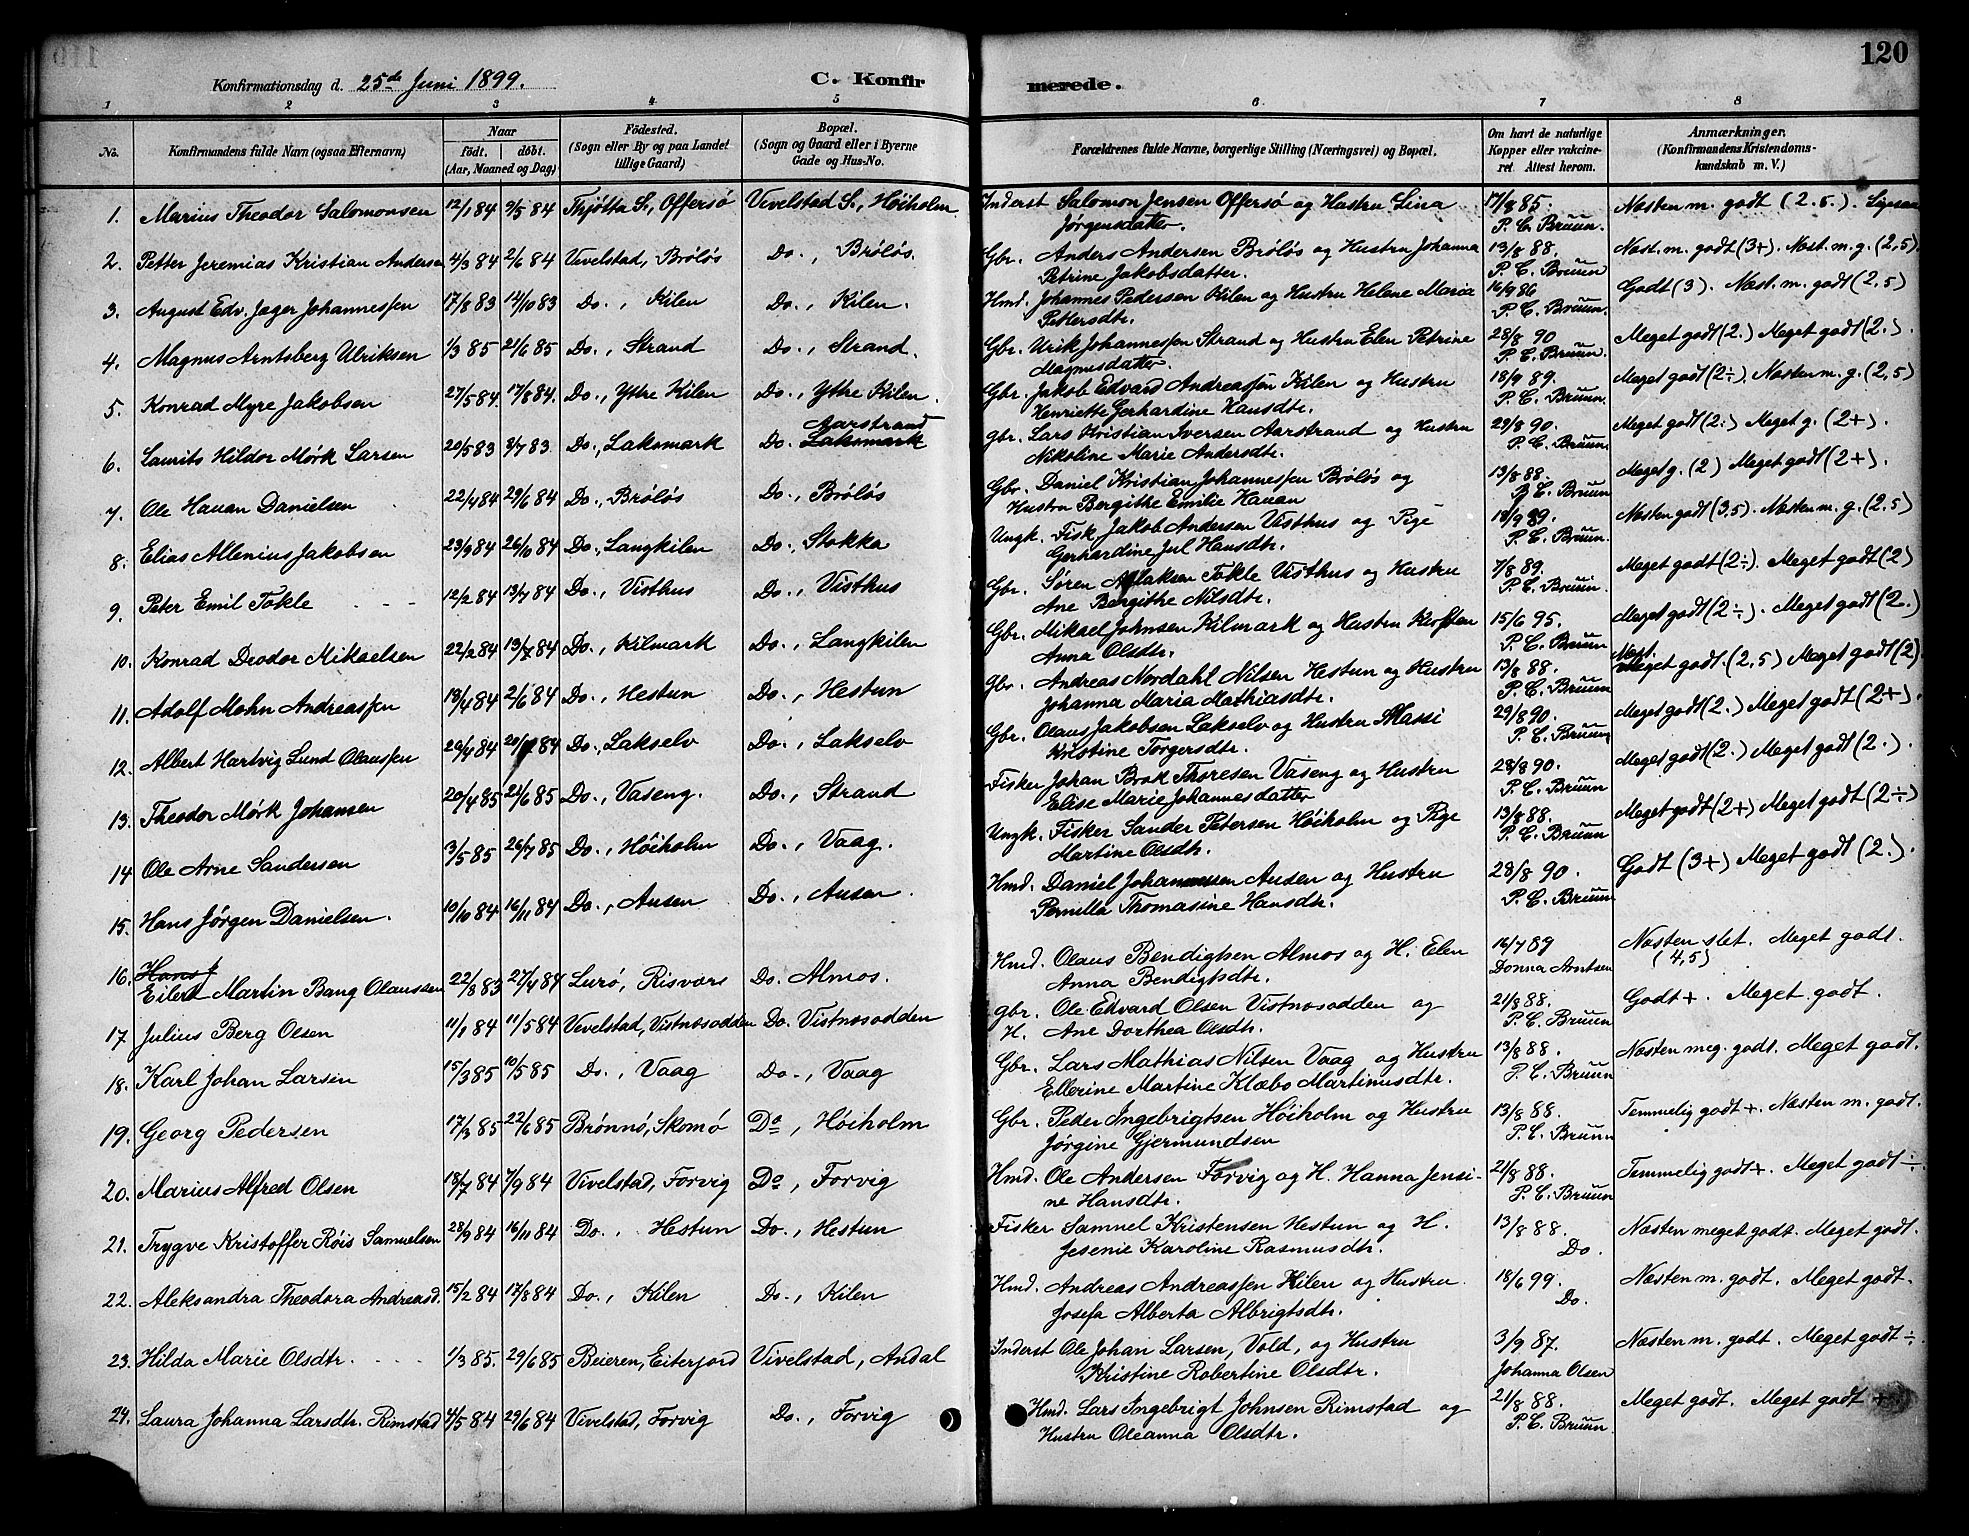 120
Konfirmationsdag d. 25de Juni 1899. C. Konfir merede.
1 2 3 4 5 6 7 8
No. Konfirmandens fulde Navn (ogsaa Efternavn) Naar født. døbt. (Aar, Maaned og Dag) Fødested. (Sogn eller By og paa Landet tillige Gaard) Bopæl. (Sogn og Gaard eller i Byerne Gade og Hus-No. Forældrenes fulde Navne, borgerlige Stilling (Næringsvei) og Bopæl. Om havt de naturlige Kopper eller vakcineret. Attest herom. Anmærkninger. (Konfirmandens Kristendomskundskab m. V.)
1. Marius Theodor Salomonsen 12/1 84 9/5 84 Thjøtta S., Offersø Vivelstad S., Høiholm Inderst Salomon Jensen Offersø og Hustru Lina 17/8 85. Næsten m. godt (2.5.).
Jørgensdatter. P. C. Bruun.
2. Petter Jeremias Kristian Andersen 4/3 84 2/6 84 Vevelstad, Brøløs Do., Brøløs. Gbr. Anders Andersen Brøløs og Hustru Johanna 13/8 88. Næst. m. godt (3+). Næst. m. g. (2,5).
Petrine Jakobsdatter. P. C. Bruun
3. August Edv. Jager Johannessen 17/8 83 14/10 83 Do., Kilen Do., Kilen. Hmd. Johannes Pedersen Kilen og Hustru Helene Maria 16/9 86 Godt (3). Næst. m. godt (2,5)
Pettersdtr. P. C. Bruun.
4. Magnus Arntsberg Ulriksen 1/3 85 21/6 85 Do., Strand Do., Strand. Gbr. Urik Johannessen Strand og Hustru Elen Petrine 28/8 90 Meget godt (2.) Meget godt (2.).
Magnusdatter P. C. Bruun.
5. Konrad Myre Jakobsen 27/5 84 17/8 84. Do., Yttre Kilen Do., Yttre Kilen. Gbr. Jakob Edvard Andreassen Kilen og Hustru 18/9 89. Meget godt (2÷). Næsten m. g. (2,5)
Henriette Gerhardine Hansdtr. P. C. Bruun.
6. Laurits Hildor Mørk Larsen 20/5 83 8/7 83. Do., Laksmark Do. Laksmark Aarstrand gbr. Lars Kristian Iversen Aarstrand og Hustru 29/8 90. Meget godt (2.) Meget g. (2+).
Nikoline Marie Andersdtr. P. C. Bruun
7. Ole Hauan Danielsen 22/4 84 29/6 84 Do., Brøløs Do., Brøløs Gbr. Daniel Kristian Johannessen Brøløs og 13/8 88. Meget g. (2) Meget godt (2+).
Hustru Bergithe Emilie Hauan P. C. Bruun
8. Elias Allenius Jakobsen 23/9 84 26/10 84 Do., Langkilen Do., Stokka Ungk. Fisk. Jakob Andersen Visthus og Pige 18/9 89. Næsten godt (3,5). Næsten m. g. (2,5)
Gerhardine Jul Hansdtr. P. C. Bruun.
9. Peter Emil Tokle 12/2 84 13/7 84 Do., Visthus Do., Visthus Gbr. Søren Aslaksen Tokle Visthus og Hustru 7/8 89. Meget godt (2÷). Meget godt (2)
Ane Bergithe Nilsdtr. P. C. Bruun.
10. Konrad Deodor Mikaelsen 22/2 84 13/7 84 Do., Kilmark Do., Langkilen Gbr. Mikael Johnsen Kilmark og Hustru Kirsten 15/6 95. Meget godt (2÷). Meget godt (2.)
Anna Olsdtr. P. C. Bruun
11. Adolf Mohn Andreassen 13/4 84 2/6 84 Do., Hestun Do., Hestun Gbr. Andreas Nordahl Nilsen Hestun og Hustru 13/8 88. Næst. meget godt. (2,5) Meget godt (2)
Johanna Maria Mathiasdtr. P. C. Bruun
12. Albert Hartvig Lund Olaussen 29/4 84 20/ 84 Do., Lakselv Do., Lakselv Gbr. Olaus Jakobsen Lakselv og Hustru Massi 29/8 90. Meget godt (2.) Meget godt (2+).
Kristine Torgersdtr. P. C. Bruun
13. Theodor Mørk Johansen 20/4 85 21/6 85 Do., Vaseng. Do., Strand Fisker Johan Brak Thoresen Vaseng og Hustru 28/8 90. Meget godt (2.) Meget godt (2.).
Elise Marie Johannesdatter P. C. Bruun
14 Ole Arne Sandersen 3/5 85 26/7 85 Do., Høiholm Do., Vaag. Ungk. Fisker Sander Petersen Høiholm og Pige 13/8 88. Meget godt (2+) Meget godt (2÷)
Martine Olsdtr. P. C. Bruun
15. Hans Jørgen Danielsen. 10/10 84 16/11 84 Do., Ausen Do., Ausen. Hmd. Daniel Johannessen Ausen og Hustru 28/8 90. Godt (3+) Meget godt (2.).
Pernilla Thomasine Hansdtr. P. C. Bruun
16. Hans J Eilert Martin Bang Olaussen 22/8 83 27/4 84 Lurø, Risvær Do. Almos. Hmd. Olaus Bendigtsen Almos og H. Elen 16/7 89 Næsten slet. Meget godt.
Anna Bendigtsdtr. Donna Arntsen (4,5)
17. Julius Berg Olsen 11/1 84 11/5 84 Vevelstad, Vistnæsodden Do. Vistnæsodden gbr. Ole Edvard Olsen Vistnæsodden og 21/8 88. Godt +. Meget godt.
H. Ane Dorthea Olsdtr. P. C. Bruun
18. Karl Johan Larsen 15/3 85 10/5 85 Do., Vaag Do., Vaag Gbr. Lars Mathias Nilsen Vaag og Hustru 13/8 88. Næsten meg. godt. Meget godt.
Ellerine Martine Klæbo Martinusdtr. P. C. Bruun
19. Georg Pedersen 17/3 85 22/6 85 Brønnø, Skomø Do, Høiholm Gbr. Peder Ingebrigtsen Høiholm og Hustru 13/8 88. Temmelig godt +. Næsten m. godt.
Jørgine Gjermundsen P. C. Bruun
20. Marius Alfred Olsen 18/7 84 7/9 84 Vivelstad, Forvig Do, Forvig Hmd. Ole Andersen Forvig og H. Hanna Jensi- 21/8 88. Temmelig godt +. Meget godt ÷
ne Hansdtr. P. C. Bruun
21. Trygve Kristoffer Røis Samuelsen 28/9 84 16/11 84 Do., Hestun Do., Hestun Fisker Samuel Kristensen Hestun og H. 13/8 88. Næsten meget godt. Meget godt.
Jesenie Karoline Rasmusdtr. Do.
22. Aleksandra Theodora Andreasd. 15/2 84 17/8 84 Do., Kilen Do., Kilen Hmd. Andreas Andreassen Kilen og Hustru. 18/6 99. Næsten m. godt. Meget godt.
Josefa Alberta Albrigtsdtr. Do.
23. Hilda Marie Olsdtr. 1/3 85. 29/6 85 Beieren, Eiterjord Vivelstad, Andal Inderst Ole Johan Larsen, Vold, og Hustru 3/9 87. Næsten m. godt. Meget godt ÷
Kristine Robertine Olsdtr. Johanna Olsen
24. Laura Johanna Larsdtr. Rimstad 4/5 84 29/6 84 Vivelstad, Forvig Do., Forvig Hmd. Lars Ingebrigt Johnsen Rimstad og 21/8 88. Meget godt. Meget godt +
Hustru Oleanna Olsdtr. P. C. Bruun.